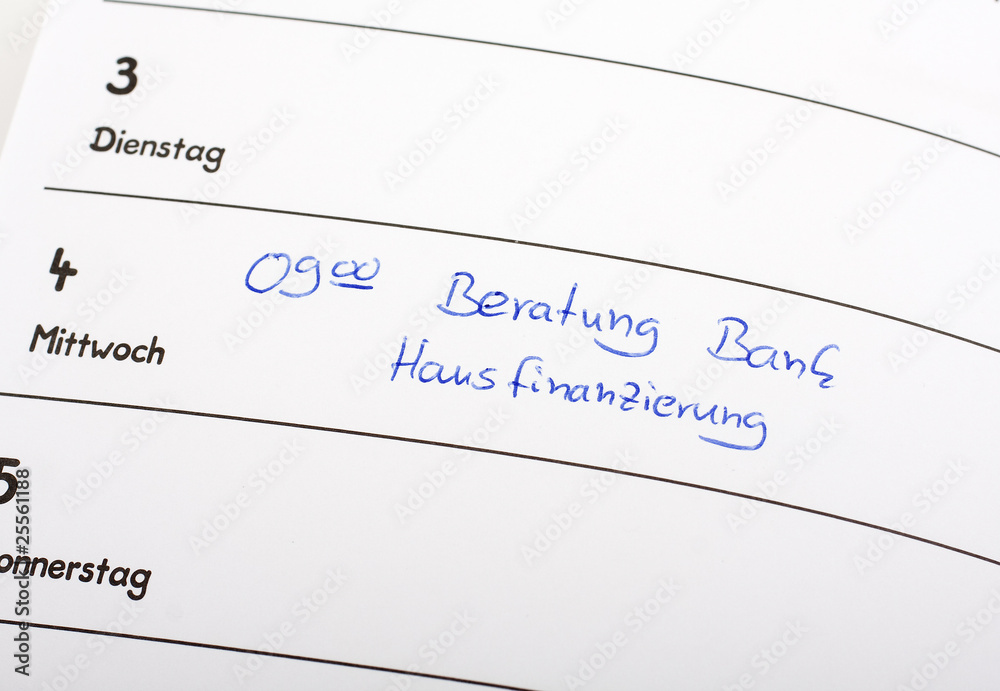 3
Dienstag
4
09 00 Beratung Bank
Mittwoch
Hausfinanzierung
5
onnerstag
Adobe Stock | #25561188